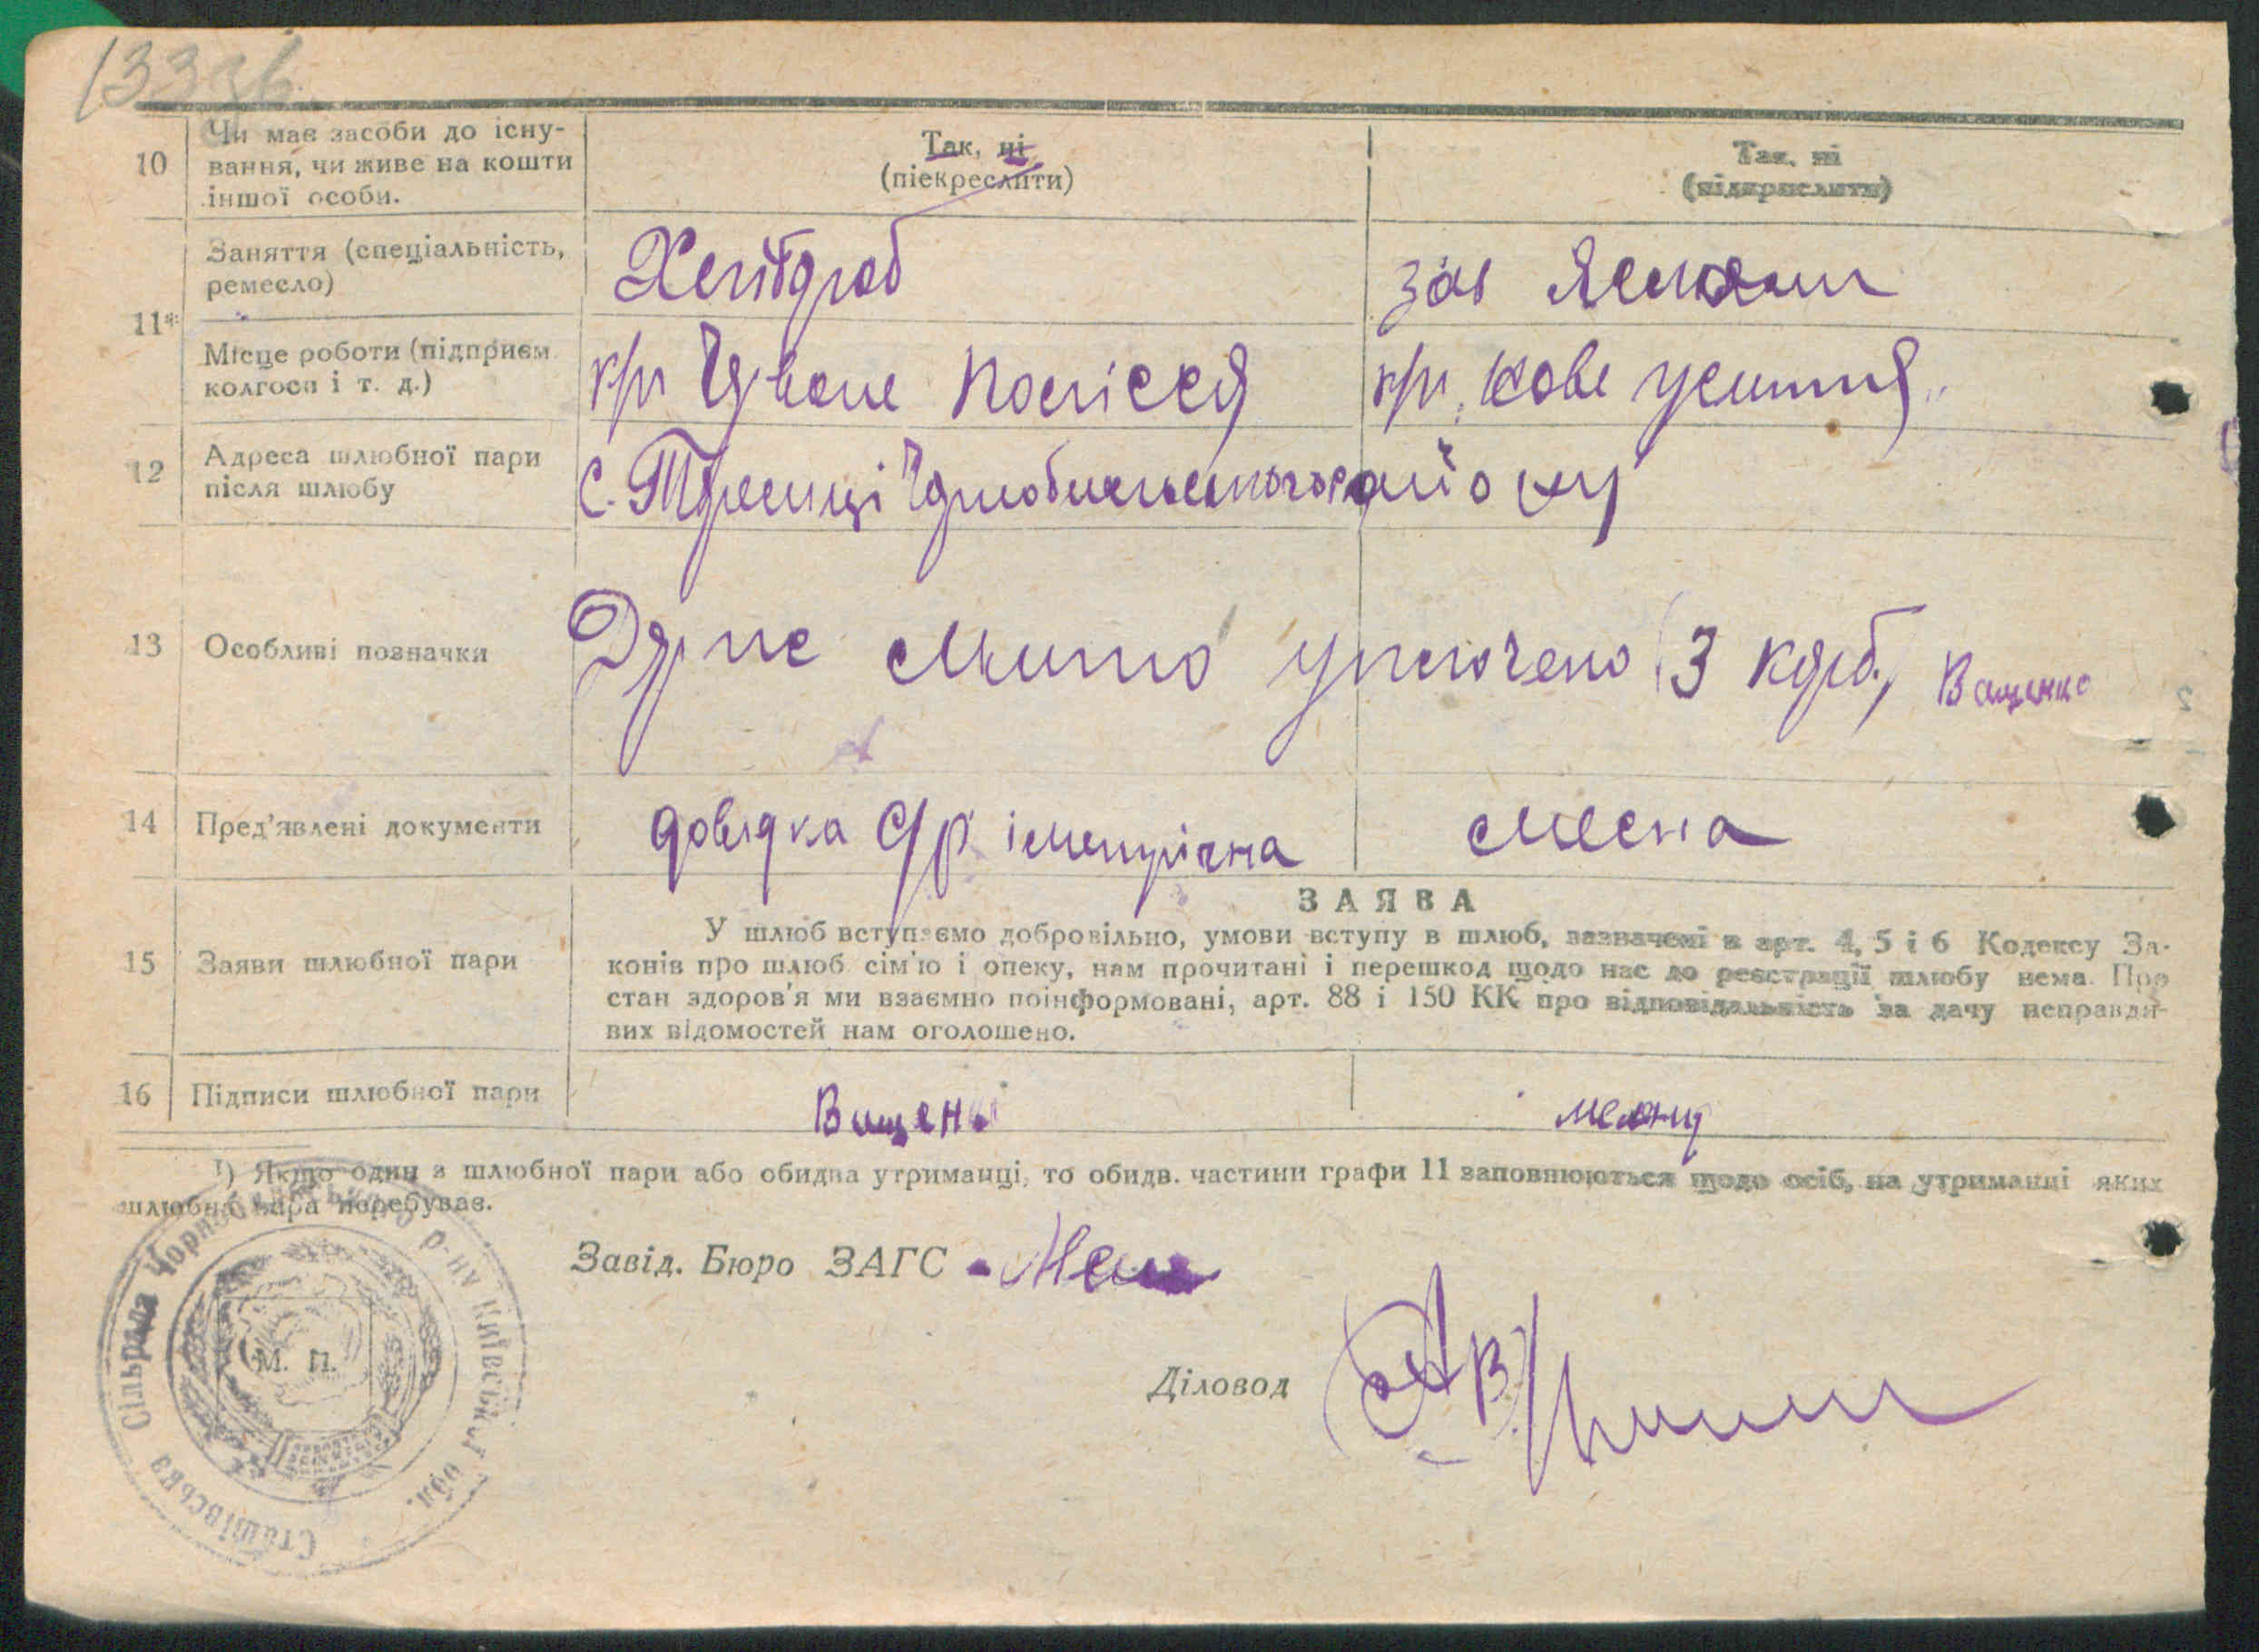 133 зв
10 Чи має засоби до існу-
вання, чи живе на кошти
іншої особи.
Так, ні
(піекреслити)
Так, ні
(підкреслити)
11*
Заняття (спеціальність,
ремесло)
зав Яслями
Місце роботи (підприєм
колгосп і т. д.)
к/г Полісся
к/г
12 Адреса шлюбної пари
після шлюбу
с. Чорнобильського району
13 Особливі позначки
мито уплочено (3 карб.) Ващенко
14 Пред'явлені документи
довідка С/р іменурічна
15 Заяви шлюбної пари
ЗАЯВА
У шлюб вступаємо добровільно, умови вступу в шлюб, зазначені в арт. 4, 5 і 6 Кодексу За-
конів про шлюб сім'ю і опеку, нам прочитані і перешкод щодо нас до реєстрації шлюбу нема. Про
стан здоров'я ми взаємно поінформовані, арт. 88 і 150 КК про відповідальність за дачу неправди-
вих відомостей нам оголошено.
16 Підписи шлюбної пари
Ващенко
¹) Якщо один з шлюбної пари або обидва утриманці, то обидв. частини графи 11 заповнюються щодо осіб, на утриманні яких
шлюбна пара перебуває.
Завід. Бюро ЗАГС
М. П.
Діловод
Сташівська Сільрада Чорнобильського р-ну Київської обл.